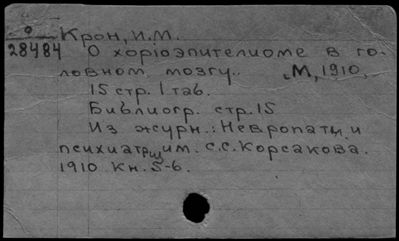 о Крон, И.М.
28484 О хоріоэпителиоме в го-
ловном мозгу. М, 1910,
15 стр. 1 таб.
Библиогр. стр. 15
Из журн.: Невропат. и
психиатрии им. С.С. Корсакова.
1910 Кн. 5-6.